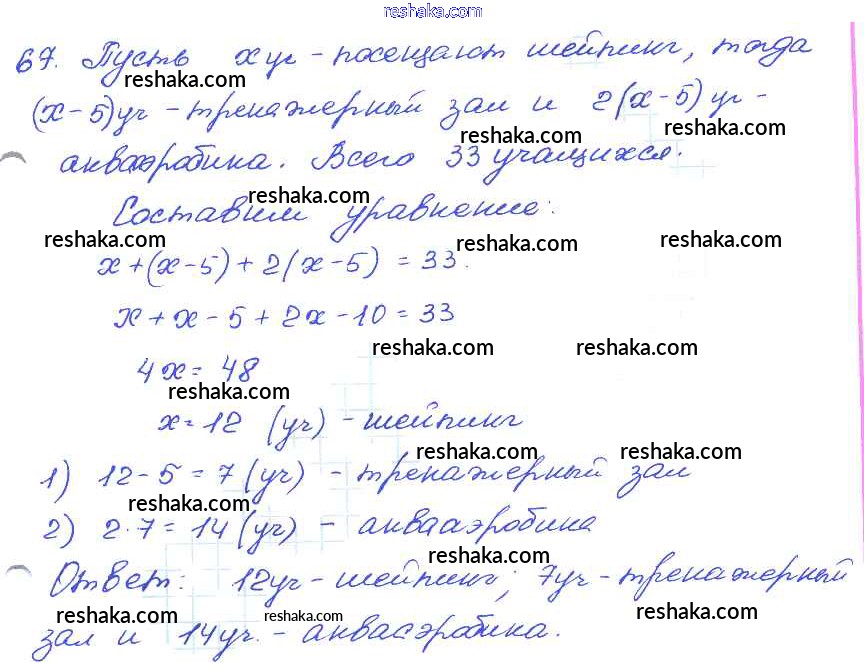 reshaka.com
67. Пусть x уч - посещают шейпинг, тогда
reshaka.com
(x-5) уч - тренажерный зал и 2(x-5) уч -
reshaka.com reshaka.com
аквааэробика. Всего 33 учащихся.
reshaka.com
Составим уравнение:
reshaka.com reshaka.com reshaka.com
x+(x-5)+2(x-5) = 33.
x+x-5+2x-10=33
reshaka.com reshaka.com
4x= 48
reshaka.com
x=12 (уч) - шейпинг
reshaka.com reshaka.com
1) 12-5=7 (уч) - тренажерный зал
reshaka.com
2) 2·7=14 (уч) - аквааэробика
reshaka.com
Ответ: 12уч - шейпинг; 7уч - тренажерный
reshaka.com reshaka.com reshaka.com
зал и 14уч. - аквааэробика.